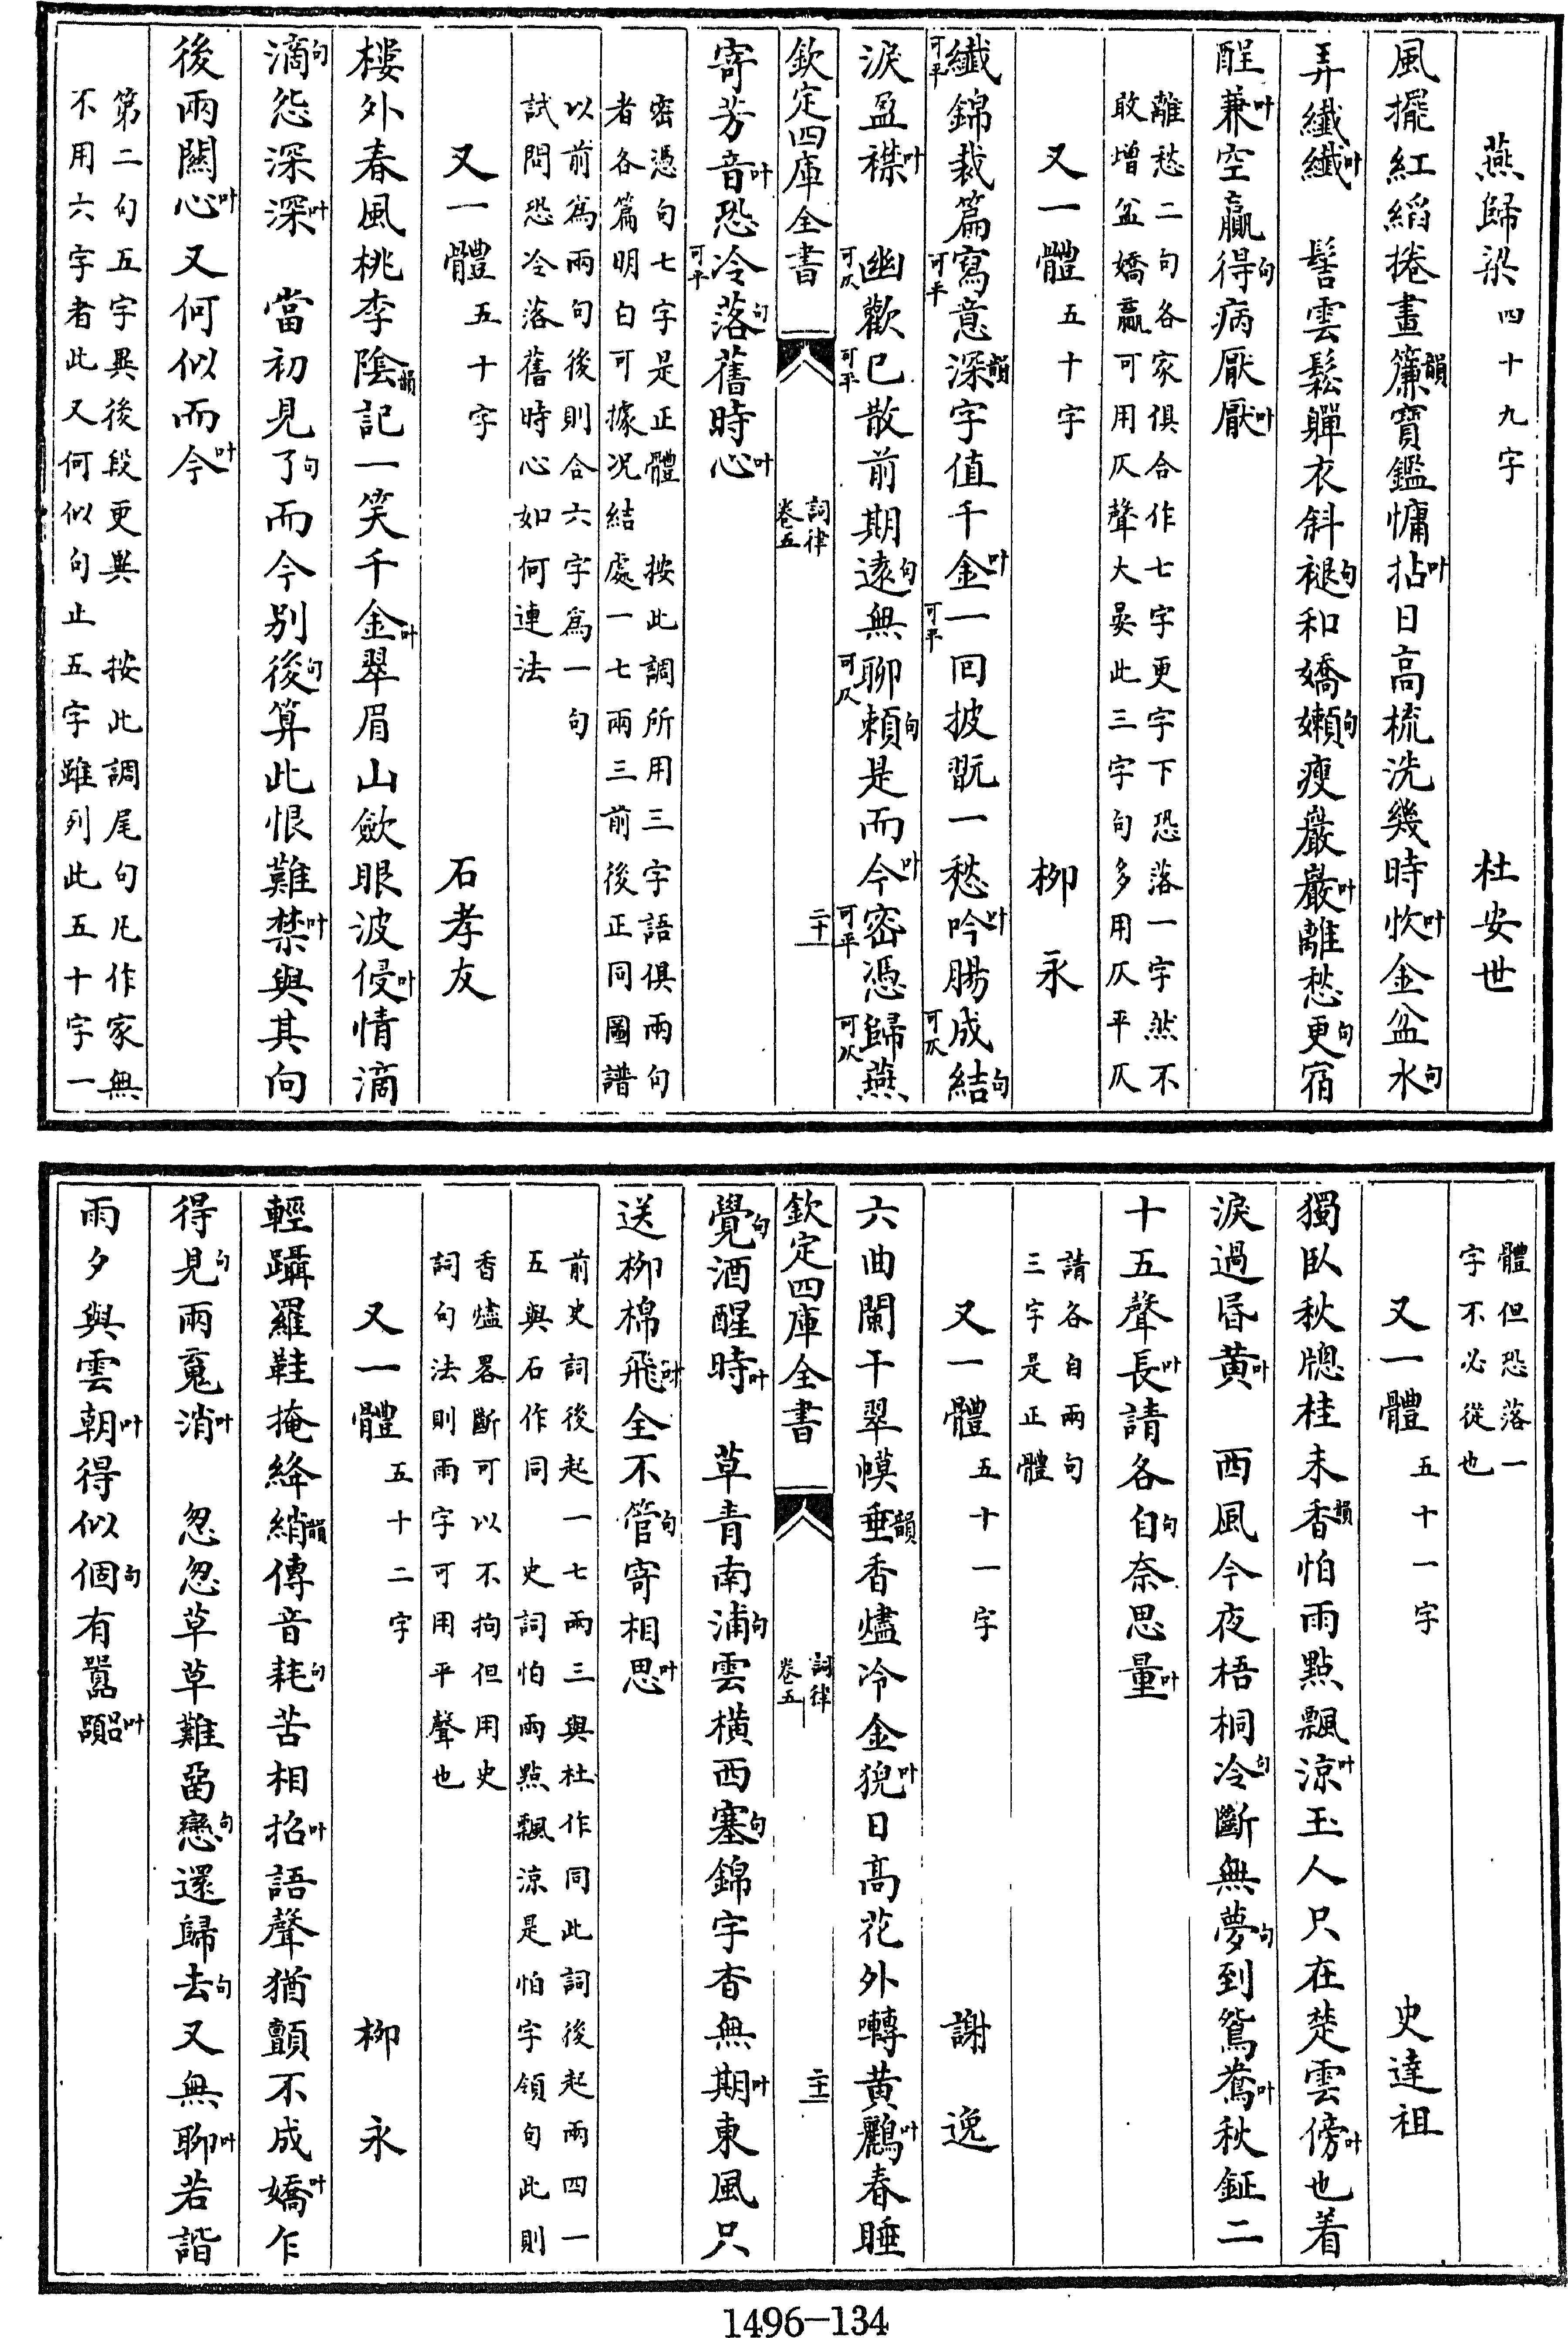 燕歸梁四十九字 杜安世
風擺紅綃捲畫簾韻寶鑑慵拈叶日高梳洗幾時忺叶金盆水句
弄纖纖叶 髻雲鬆軃衣斜褪句和嬌嬾句瘦巖巖叶離愁更句宿
酲兼叶空贏得句病厭厭叶
離愁二句各家俱合作七字更字下恐落一字然不
敢增盆嬌贏可用仄聲大晏此三字句多用仄平仄
又一體五十字 柳永
纖可平錦裁篇寫可平意深韻字值千金叶一可平回披翫一愁吟叶腸成可仄結句
淚盈襟叶 幽可仄歡已可平散前期遠句無聊可仄賴句是而今叶密可平憑歸可仄燕
欽定四庫全書 詞律 卷五 二十
寄芳音叶恐冷可平落句舊時心叶
密憑句七字是正體 按此調所用三字語俱兩句
者各篇明白可據况結處一七兩三前後正同圖譜
以前爲兩句後則合六字爲一句
試問恐冷落舊時心如何連法
又一體五十字 石孝友
樓外春風桃李陰韻記一笑千金叶翠眉山歛眼波侵叶情滴
滴句怨深深叶 當初見了句而今别後句算此恨難禁叶與其向
後兩關心叶又何似而今叶
第二句五字異後段更異 按此調尾句凡作家無
不用六字者此又何似句止五字雖列此五十字一
體但恐落一
字不必從也
又一體五十一字 史達祖
獨臥秋牕桂未香韻怕雨點飄涼叶玉人只在楚雲傍叶也着
淚過昏黄叶 西風今夜梧桐冷句斷無夢句到鴛鴦叶秋鉦二
十五聲長叶請各自句奈思量叶
請各自兩句
三字是正體
又一體五十一字 謝逸
六曲闌干翠幙垂韻香燼冷金猊叶日高花外囀黄鸝叶春睡
欽定四庫全書 詞律 卷五 二十一
覺句酒醒時叶 草青南浦句雲横西塞句錦字杳無期叶東風只
送柳棉飛叶全不管句寄相思叶
前史詞後起一七兩三與杜作同此詞後起兩四一
五與石作同 史詞怕兩點飄涼是怕字領句此則
香燼畧斷可以不拘但用史
詞句法則雨字可用平聲也
又一體五十二字 柳永
輕躡羅鞋掩絳綃韻傳音耗句苦相招叶語聲猶顫不成嬌叶乍
得見句兩䰟消叶 怱怱草草難留戀句還歸去句又無聊叶若諧
雨夕與雲朝叶得似個句有囂囂叶
1496-134